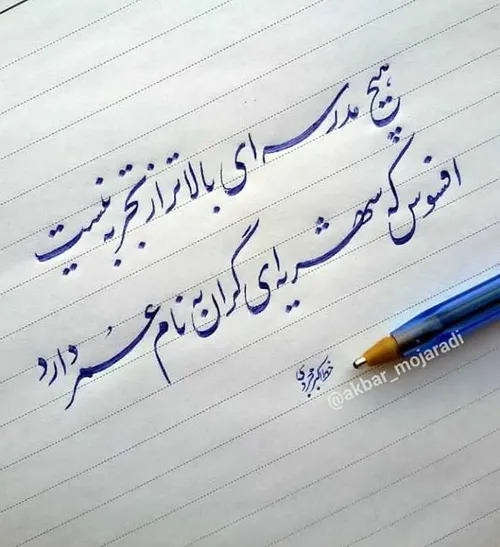 هیچ مدرسه ای بالاتر از تجربه نیست
افسوس که شهریه ای گران به نام عمر دارد
خط اکبر مجردی
@akbar_mojaradi